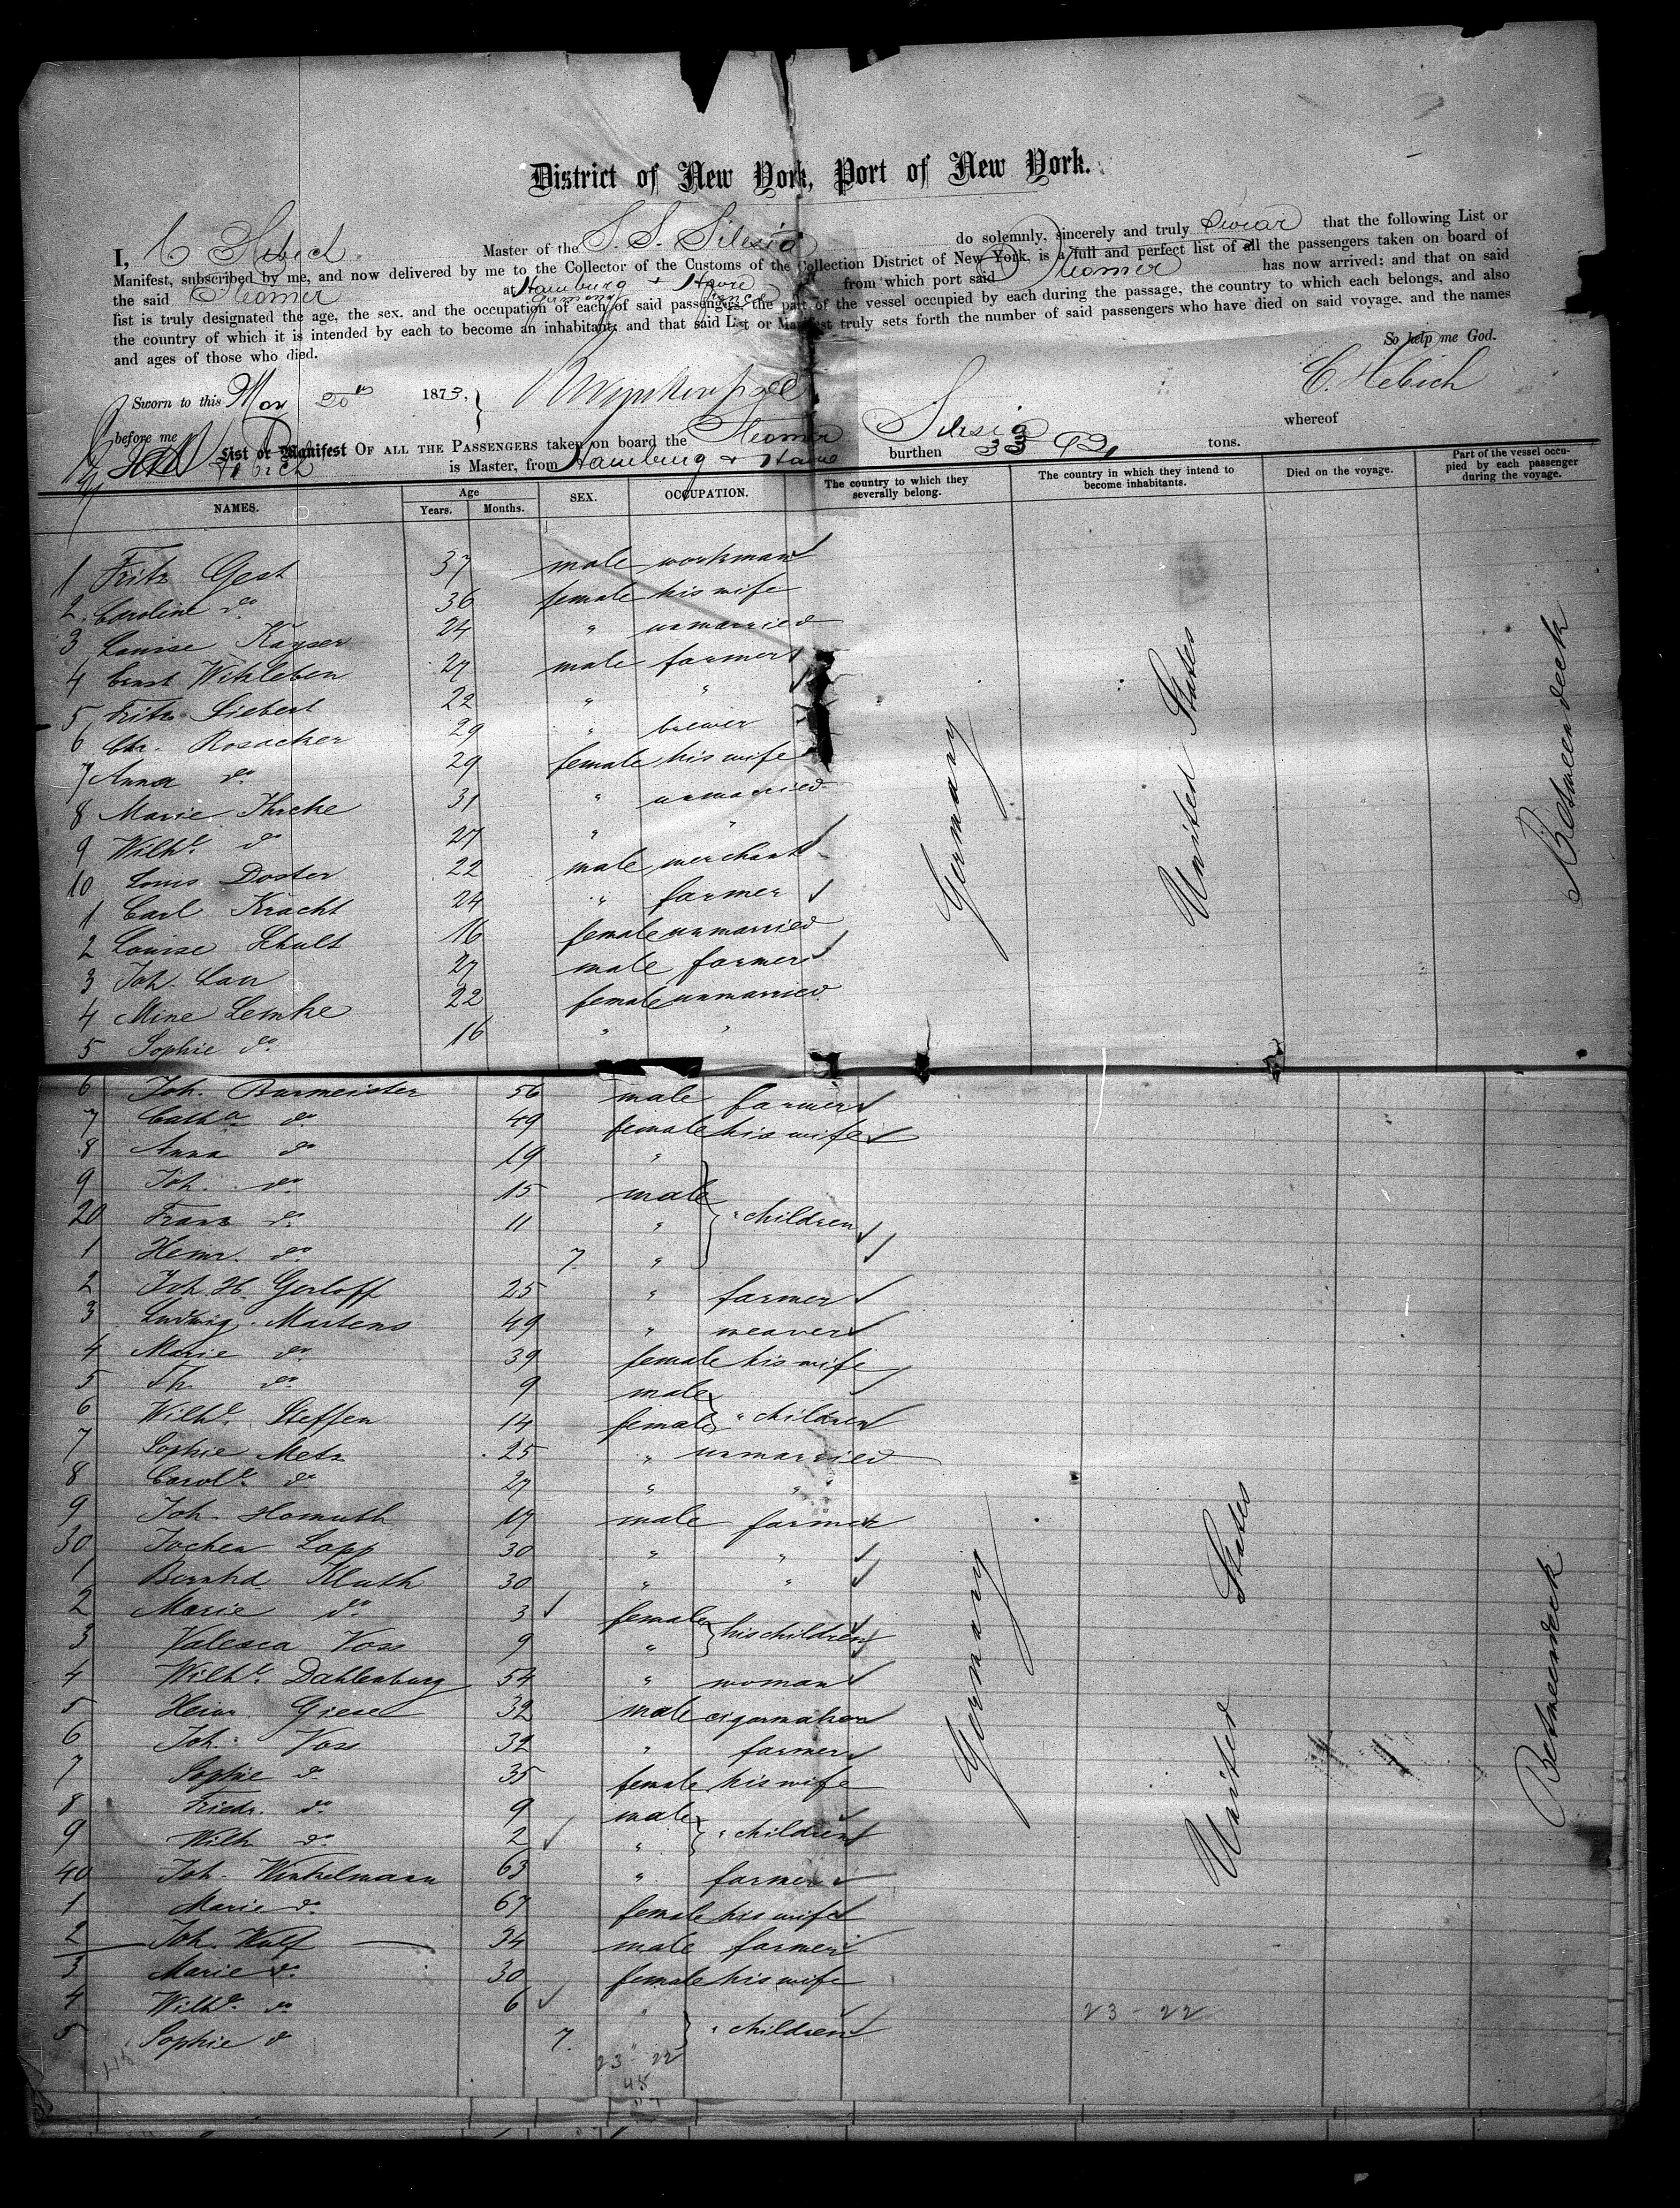 District of New York, Port of New York.
I, C Hebich Master of the S. S. Silesia do solemnly, sincerely and truly Swear that the following List or
Manifest, subscribed by me, and now delivered by me to the Collector of the Customs of the Collection District of New York, is a full and perfect list of all the passengers taken on board of
the said Steamer at Hamburg + Havre from which port said Steamer has now arrived; and that on said
Germany France
list is truly designated the age, the sex, and the occupation of each of said passengers, the part of the vessel occupied by each during the passage, the country to which each belongs, and also
the country of which it is intended by each to become an inhabitant; and that said List or Manifest truly sets forth the number of said passengers who have died on said voyage, and the names
and ages of those who died.
So help me God.
Sworn to this May 20th 1873, C. Hebich
before me
List or Manifest OF ALL THE PASSENGERS taken on board the Steamer Silesia whereof
Hebich is Master, from Hamburg + Havre burthen tons.
NAMES. Age Years. Months. SEX. OCCUPATION. The country to which they severally belong. The country in which they intend to become inhabitants. Died on the voyage. Part of the vessel occupied by each passenger during the voyage.
1 Fritz Gest 37 male workman
2 Caroline do 36 female his wife
3 Louise Kayser 24 " unmarried
4 Ernst Witzleben 27 male farmer
5 Fritz Siebert 22 " "
6 Chr. Rosacker 29 " brewer
7 Anna do 29 female his wife
8 Marie Thrcke 31 " unmarried
9 Wilhe do 27 " "
10 Louis Doster 22 male merchant
1 Carl Kracht 24 " farmer
2 Louise Schult 16 female unmarried
3 Joh. Lau 27 male farmer
4 Mine Lemke 22 female unmarried
5 Sophie do 16 " "
Germany United States Betweendeck
6 Joh. Burmeister 56 male farmer
7 Catha do 49 female his wife
8 Anna do 19 "
9 Joh. do 15 male
20 Franz do 11 " " children
1 Heinr. do 7 "
2 Joh. H. Gerloff 25 " farmer
3 Ludwig Martens 49 " weaver
4 Marie do 39 female his wife
5 Fr. do 9 male
6 Wilhe Steffen 14 female " children
7 Sophie Metz 25 " unmarried
8 Carole do 27 " "
9 Joh. Homuth 17 male farmer
30 Jochen Lopp 30 " "
1 Bernhd Kluth 30 " "
2 Marie do 3 female
3 Valesca Voss 9 " his children
4 Wilhe Dahlenburg 54 " woman
5 Heinr. Giese 32 male cigarmaker
6 Joh. Voss 32 " farmer
7 Sophie do 35 female his wife
8 Friedr. do 9 male
9 Wilh do 2 " " children
40 Joh. Winkelmann 63 " farmer
1 Marie do 67 female his wife
2 Joh. Wulf 34 male farmer
3 Marie do 30 female his wife
4 Wilhe do 6 "
5 Sophie do 7 " children
Germany United States Betweendeck
23 - 22
23 - 22
45